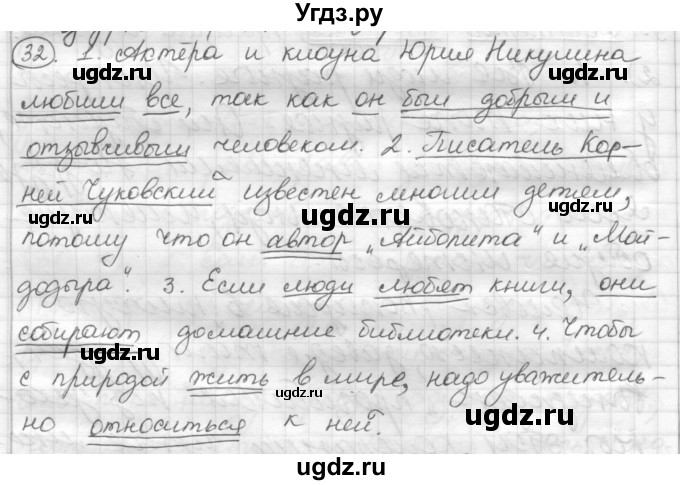 Угдз.ру
32. 1. Актёра и клоуна Юрия Никулина
любили все, так как он был добрым и
отзывчивым человеком. 2. Писатель Кор-
ней Чуковский известен многим детям,
потому что он автор „Айболита“ и „Мой-
додыра“. 3. Если люди любят книги, они
собирают домашние библиотеки. 4. Чтобы
с природой жить в мире, надо уважитель-
но относиться к ней.
ugdz.ru
ugdz.ru
ugdz.ru
ugdz.ru
ugdz.ru
ugdz.ru
ugdz.ru
ugdz.ru
ugdz.ru
ugdz.ru
ugdz.ru
ugdz.ru
ugdz.ru